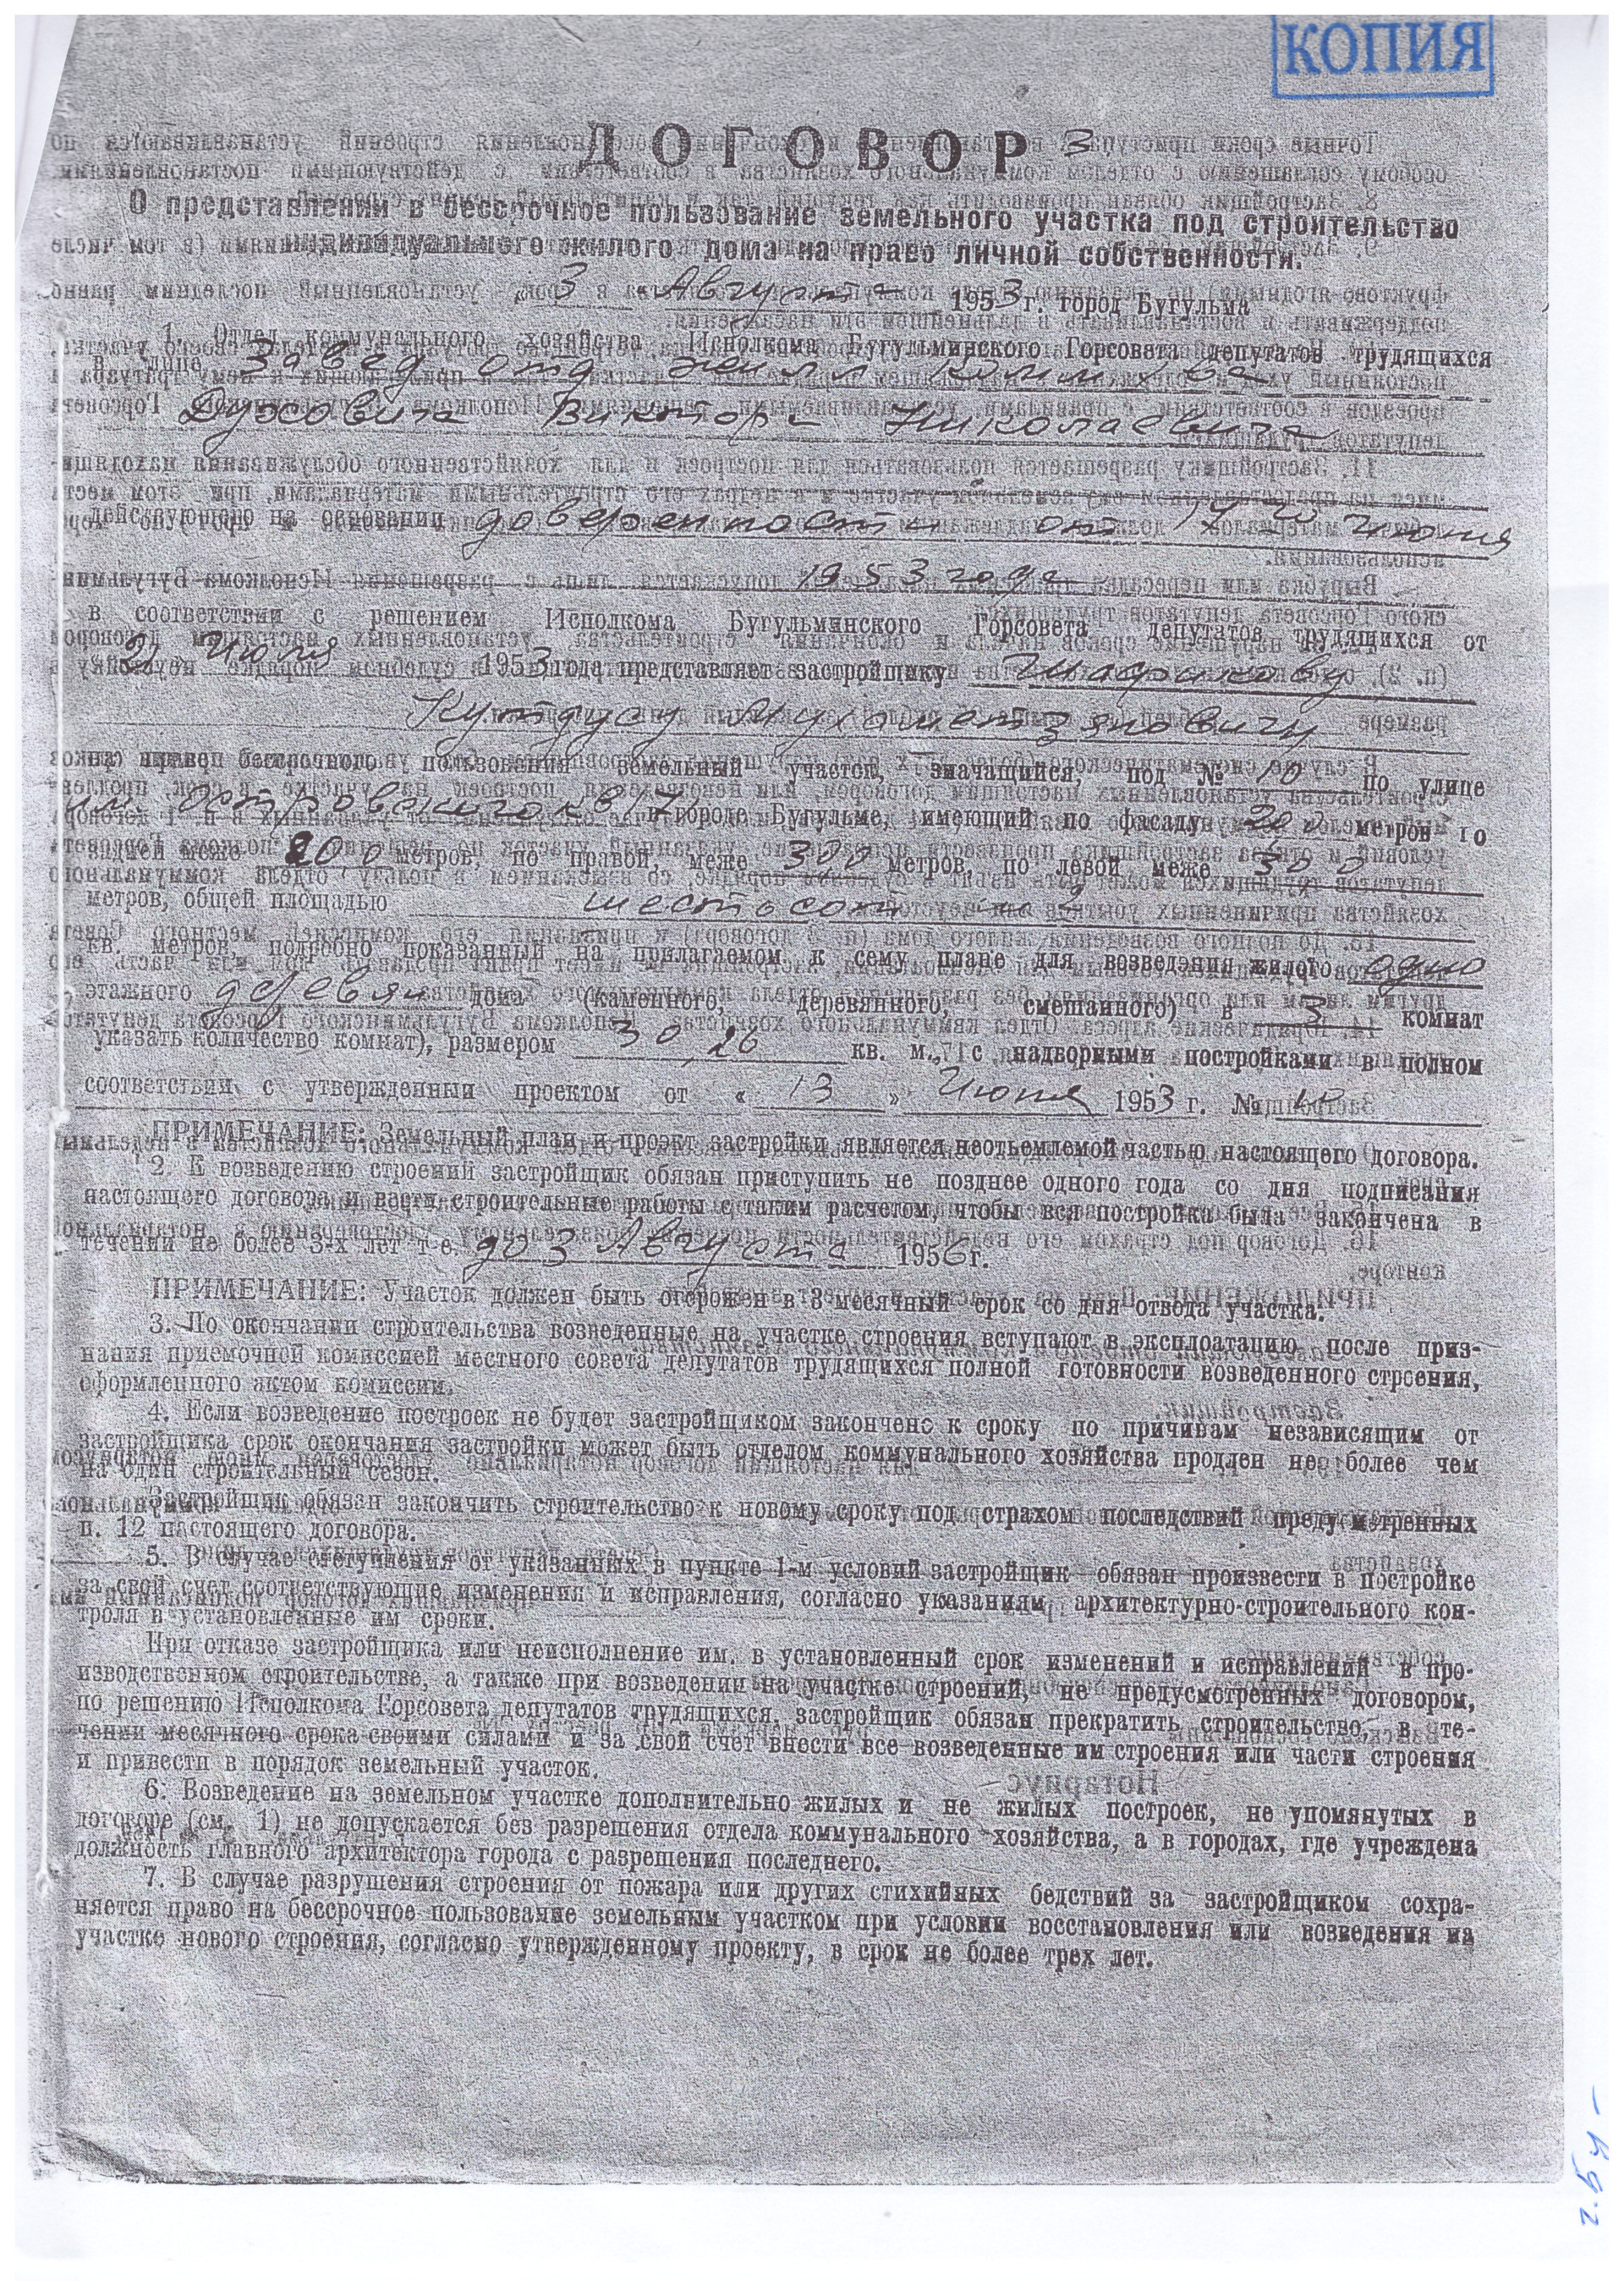 КОПИЯ
ДОГОВОР
О представлении в бессрочное пользование земельного участка под строительство
индивидуального жилого дома на право личной собственности.
„ 3 " Августа 1953 г. город Бугульма
1. Отдел коммунального хозяйства Исполкома Бугульминского Горсовета депутатов трудящихся
в лице Завед отд
Виктора Николаевича
действующего на основании доверенности от июня
1953 года
в соответствии с решением Исполкома Бугульминского Горсовета депутатов трудящихся от
1953 года представляет застройщику
Кутдусу Мухаметзяновичу
на праве бессрочного пользования земельный участок, значащийся, под № 10 по улице
им. Островского кв 17 в городе Бугульме, имеющий по фасаду 20 0 метров по
задней меже 20 0 метров, по правой, меже 30 0 метров, по левой меже 30 0
метров, общей площадью шестьсот м2
кв. метров, подробно показанный на прилагаемом к сему плане для возведэния жилого одно
этажного деревян дома (каменного, деревянного, смешанного) в 3 комнат
указать количество комнат), размером 30,26 кв. м., с надворными постройками в полном
соответствии с утвержденныи проектом от « 13 » Июня 1953 г. № 10
ПРИМЕЧАНИЕ: Земельный план и проэкт застройки является неотьемлемой частью настоящего договора.
2. К возведению строений застройщик обязан приступить не позднее одного года со дня подписания
настоящего договора и вести строительные работы с таким расчетом, чтобы вся постройка была закончена в
течении не более 3-х лет т-е. до 3 Августа 1956 г.
ПРИМЕЧАНИЕ: Участок должен быть огорожен в 3 месячный срок со дня отвода участка.
3. По окончании строительства возведенные на участке строения вступают в эксплоатацию после приз-
нания приемочной комиссией местного совета депутатов трудящихся полной готовности возведенного строения,
оформленного актом комиссии.
4. Если возведение построек не будет застройщиком закончено к сроку по причинам независящим от
застройщика срок окончания застройки может быть отделом коммунального хозяйства продлен не более чем
на один строительный сезон.
Застройщик обязан закончить строительство к новому сроку под страхом последствий предусмотренных
п. 12 настоящего договора.
5. В случае отступления от указанных в пункте 1-м условий застройщик обязан произвести в постройке
за свой счет соответствующие изменения и исправления, согласно указаниям архитектурно-строительного кон-
троля в установленные им сроки.
При отказе застройщика или неисполнение им. в установленный срок изменений и исправлений в про-
изводственном строительстве, а также при возведении на участке строений, не предусмотренных договором,
по решению Исполкома Горсовета депутатов трудящихся, застройщик обязан прекратить строительство, в те-
чении месячного срока своими силами и за свой счет внести все возведенные им строения или части строения
и привести в порядок земельный участок.
6. Возведение на земельном участке дополнительно жилых и не жилых построек, не упомянутых в
договоре (см. 1) не допускается без разрешения отдела коммунального хозяйства, а в городах, где учреждена
должность главного архитектора города с разрешения последнего.
7. В случае разрушения строения от пожара или других стихийных бедствий за застройщиком сохра-
няется право на бессрочное пользование земельным участком при условии восстановления или возведения на
участке нового строения, согласно утвержденному проекту, в срок не более трех лет.